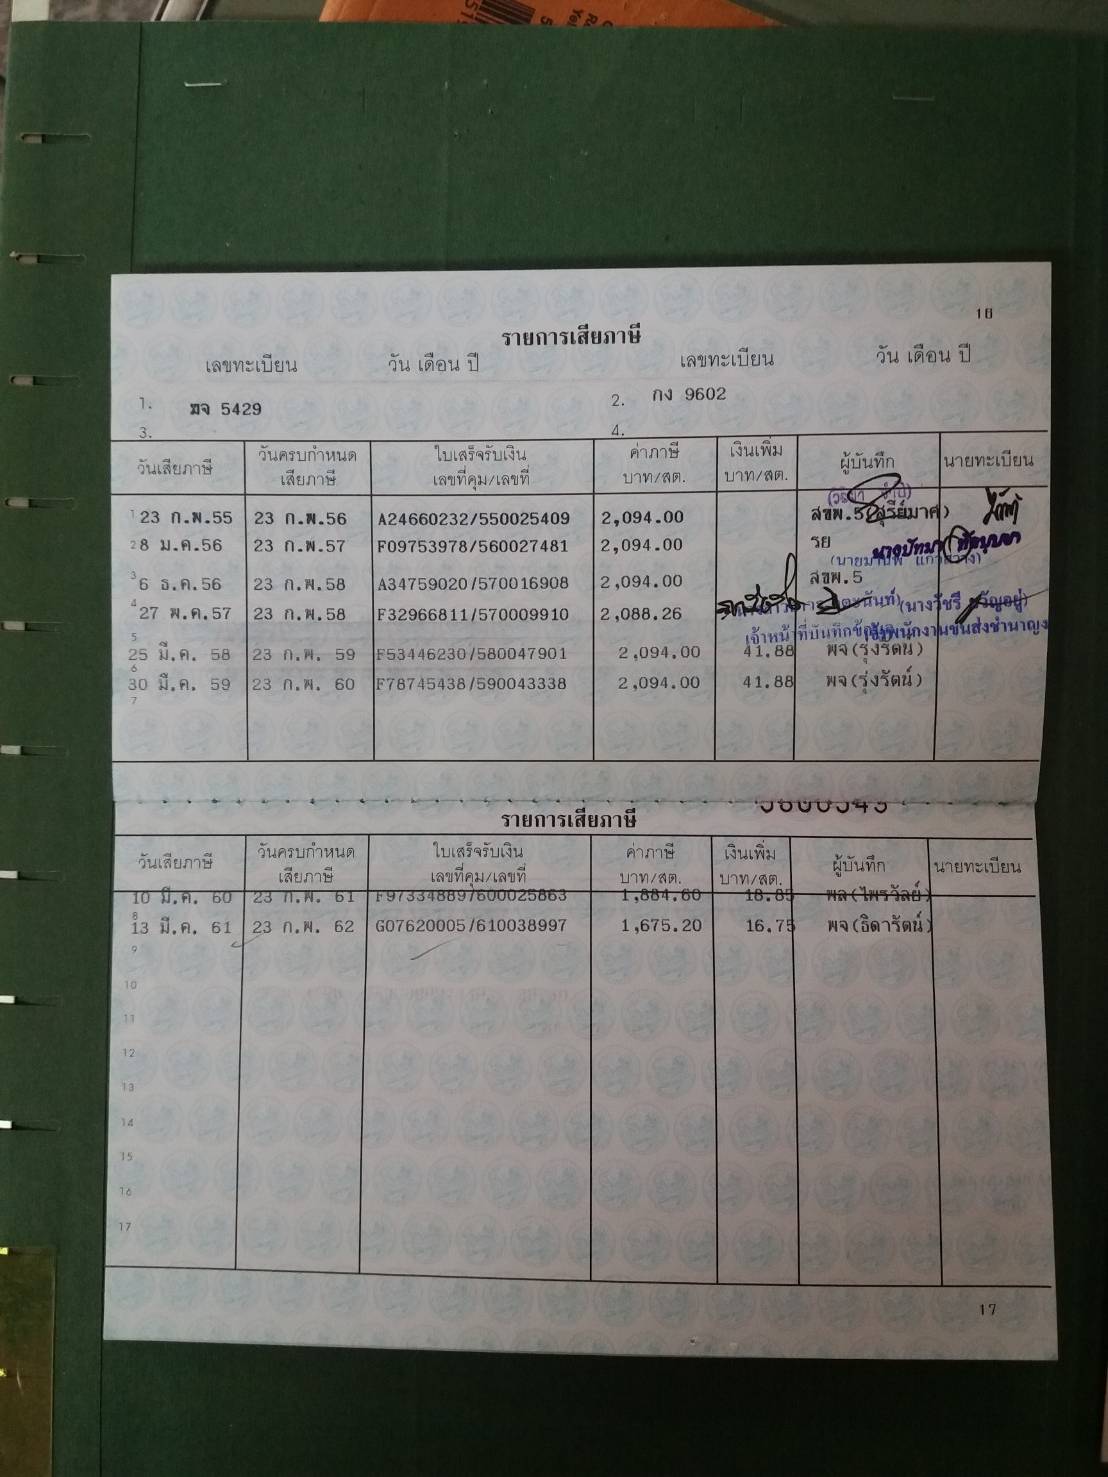 16
รายการเสียภาษี
เลขทะเบียน วัน เดือน ปี เลขทะเบียน วัน เดือน ปี
1. ฆจ 5429 2. กง 9602
3. 4.
วันเสียภาษี วันครบกำหนดเสียภาษี ใบเสร็จรับเงิน เลขที่คุม/เลขที่ ค่าภาษี บาท/สต. เงินเพิ่ม บาท/สต. ผู้บันทึก นายทะเบียน
1 23 ก.พ.55 23 ก.พ.56 A24660232/550025409 2,094.00 สขพ.5(สุรีย์มาศ)
2 8 ม.ค.56 23 ก.พ.57 F09753978/560027481 2,094.00 รย
3 6 ธ.ค.56 23 ก.พ.58 A34759020/570016908 2,094.00 สขพ.5
4 27 พ.ค.57 23 ก.พ.58 F32966811/570009910 2,088.26
เจ้าหน้าที่บันทึกข้อมูล เจ้าพนักงานขนส่งชำนาญง
5 25 มี.ค. 58 23 ก.พ. 59 F53446230/580047901 2,094.00 41.88 พจ(รุ่งรัตน์)
6 30 มี.ค. 59 23 ก.พ. 60 F78745438/590043338 2,094.00 41.88 พจ(รุ่งรัตน์)
7
5600549
รายการเสียภาษี
วันเสียภาษี วันครบกำหนดเสียภาษี ใบเสร็จรับเงิน เลขที่คุม/เลขที่ ค่าภาษี บาท/สต. เงินเพิ่ม บาท/สต. ผู้บันทึก นายทะเบียน
10 มี.ค. 60 23 ก.พ. 61 F97334889/600025863 1,884.60 18.85 พล(ไพรวัลย์)
8 13 มี.ค. 61 23 ก.พ. 62 G07620005/610038997 1,675.20 16.75 พจ(ธิดารัตน์)
9
10
11
12
13
14
15
16
17
17